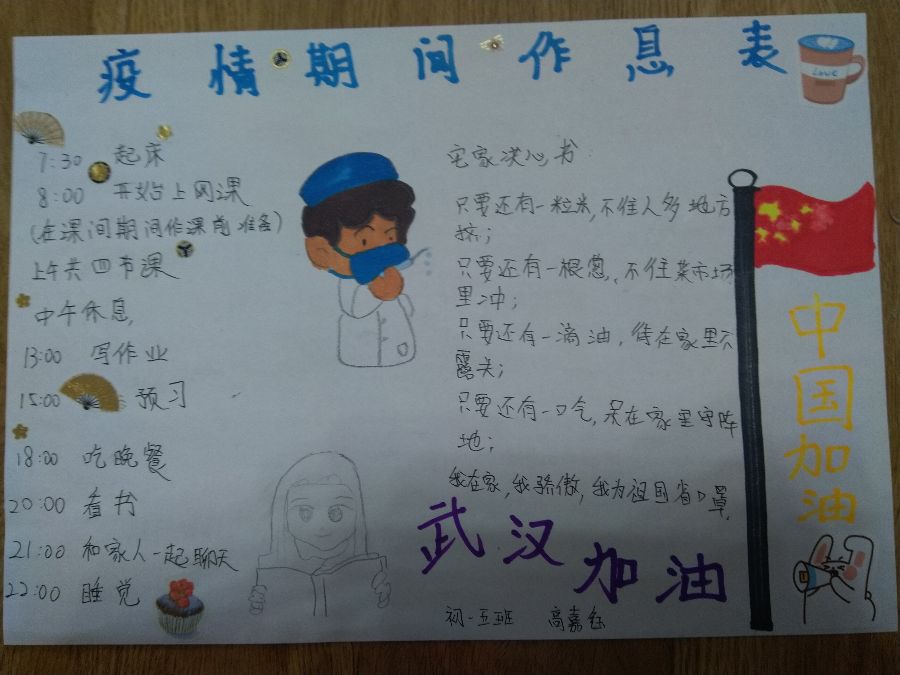 疫情期间作息表
Love
7:30 起床
8:00 开始上网课
(在课间期间作课前准备)
上午共四节课
中午休息,
13:00 写作业
15:00 预习
18:00 吃晚餐
20:00 看书
21:00 和家人一起聊天
22:00 睡觉
宅家决心书
只要还有一粒米,不往人多地方
挤;
只要还有一根葱,不往菜市场
里冲;
只要还有一滴油,待在家里不
露头;
只要还有一口气,呆在家里守阵
地;
我在家,我骄傲,我为祖国省口罩.
武汉加油
初一五班 高嘉钰
中国加油